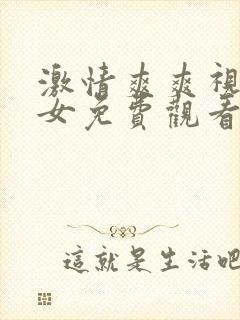 激情爽爽視
女免費觀看
這就是生活吧